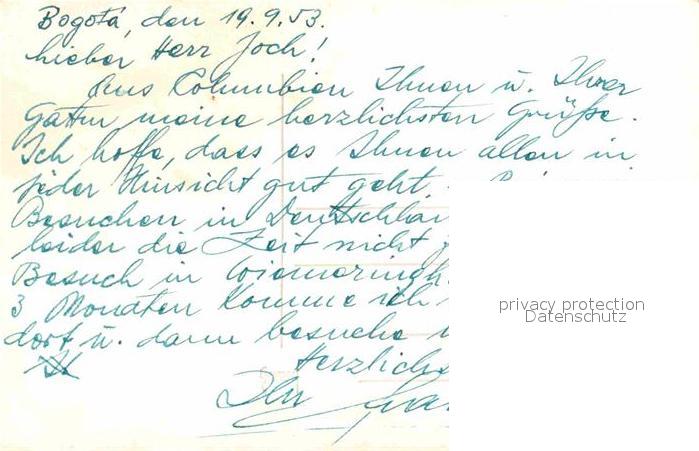 Bogotá, den 19.9.53.
Lieber Herr Joch!
Aus Kolumbien Ihnen u. Ihrer
Gattin meine herzlichsten Grüße.
Ich hoffe, dass es Ihnen allen in
jeder Hinsicht gut geht.
Besuchen in Deutschla
leider die Zeit nicht
Besuch in
3 Monaten komme ich
dort u. dann besuche
Herzlichs
Ihr
privacy protection
Datenschutz